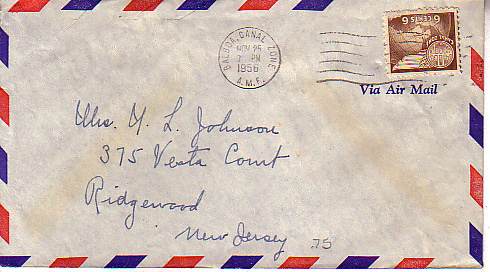 BALBOA, CANAL ZONE
NOV 25
PM
1956
A.M.F.
6 CENTS 6
CANAL ZONE
Via Air Mail
Mrs. Y. L. Johnson
375 Vesta Court
Ridgewood
New Jersey
.75